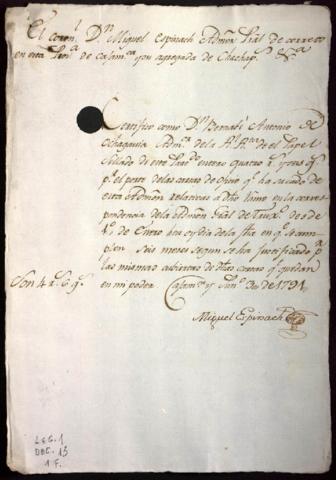 El coron.l D.n Miguel Espinach Adm.or Pral. de correos
en esta Prov.a de Caxam.ca y su agregada de Chachap.s &.a
Certifico como D.n Bernabé Antonio de
Adm.or de la R.l R.ta de el Papel
Sellado di este Par.do entero quatro r.s y seis q.s
p.r el porte de las cartas de oficio q.e ha sacado de
esta Adm.on relativas a dho Ramo en la corres-
pondencia de la Adm.on Gral de Taux.o desde
1.o de Enero hasta dia de la fha en q.e se cum-
plen seis meses segun se ha justificado p.r
las mismas cubiertas de dhas cartas q.e quedan
en mi poder. Caxam.ca y Jun.o 30 de 1791,
Son 4 r.s 6 q.s
Miguel Espinach
LEG. 1
DOC. 13
1 F.